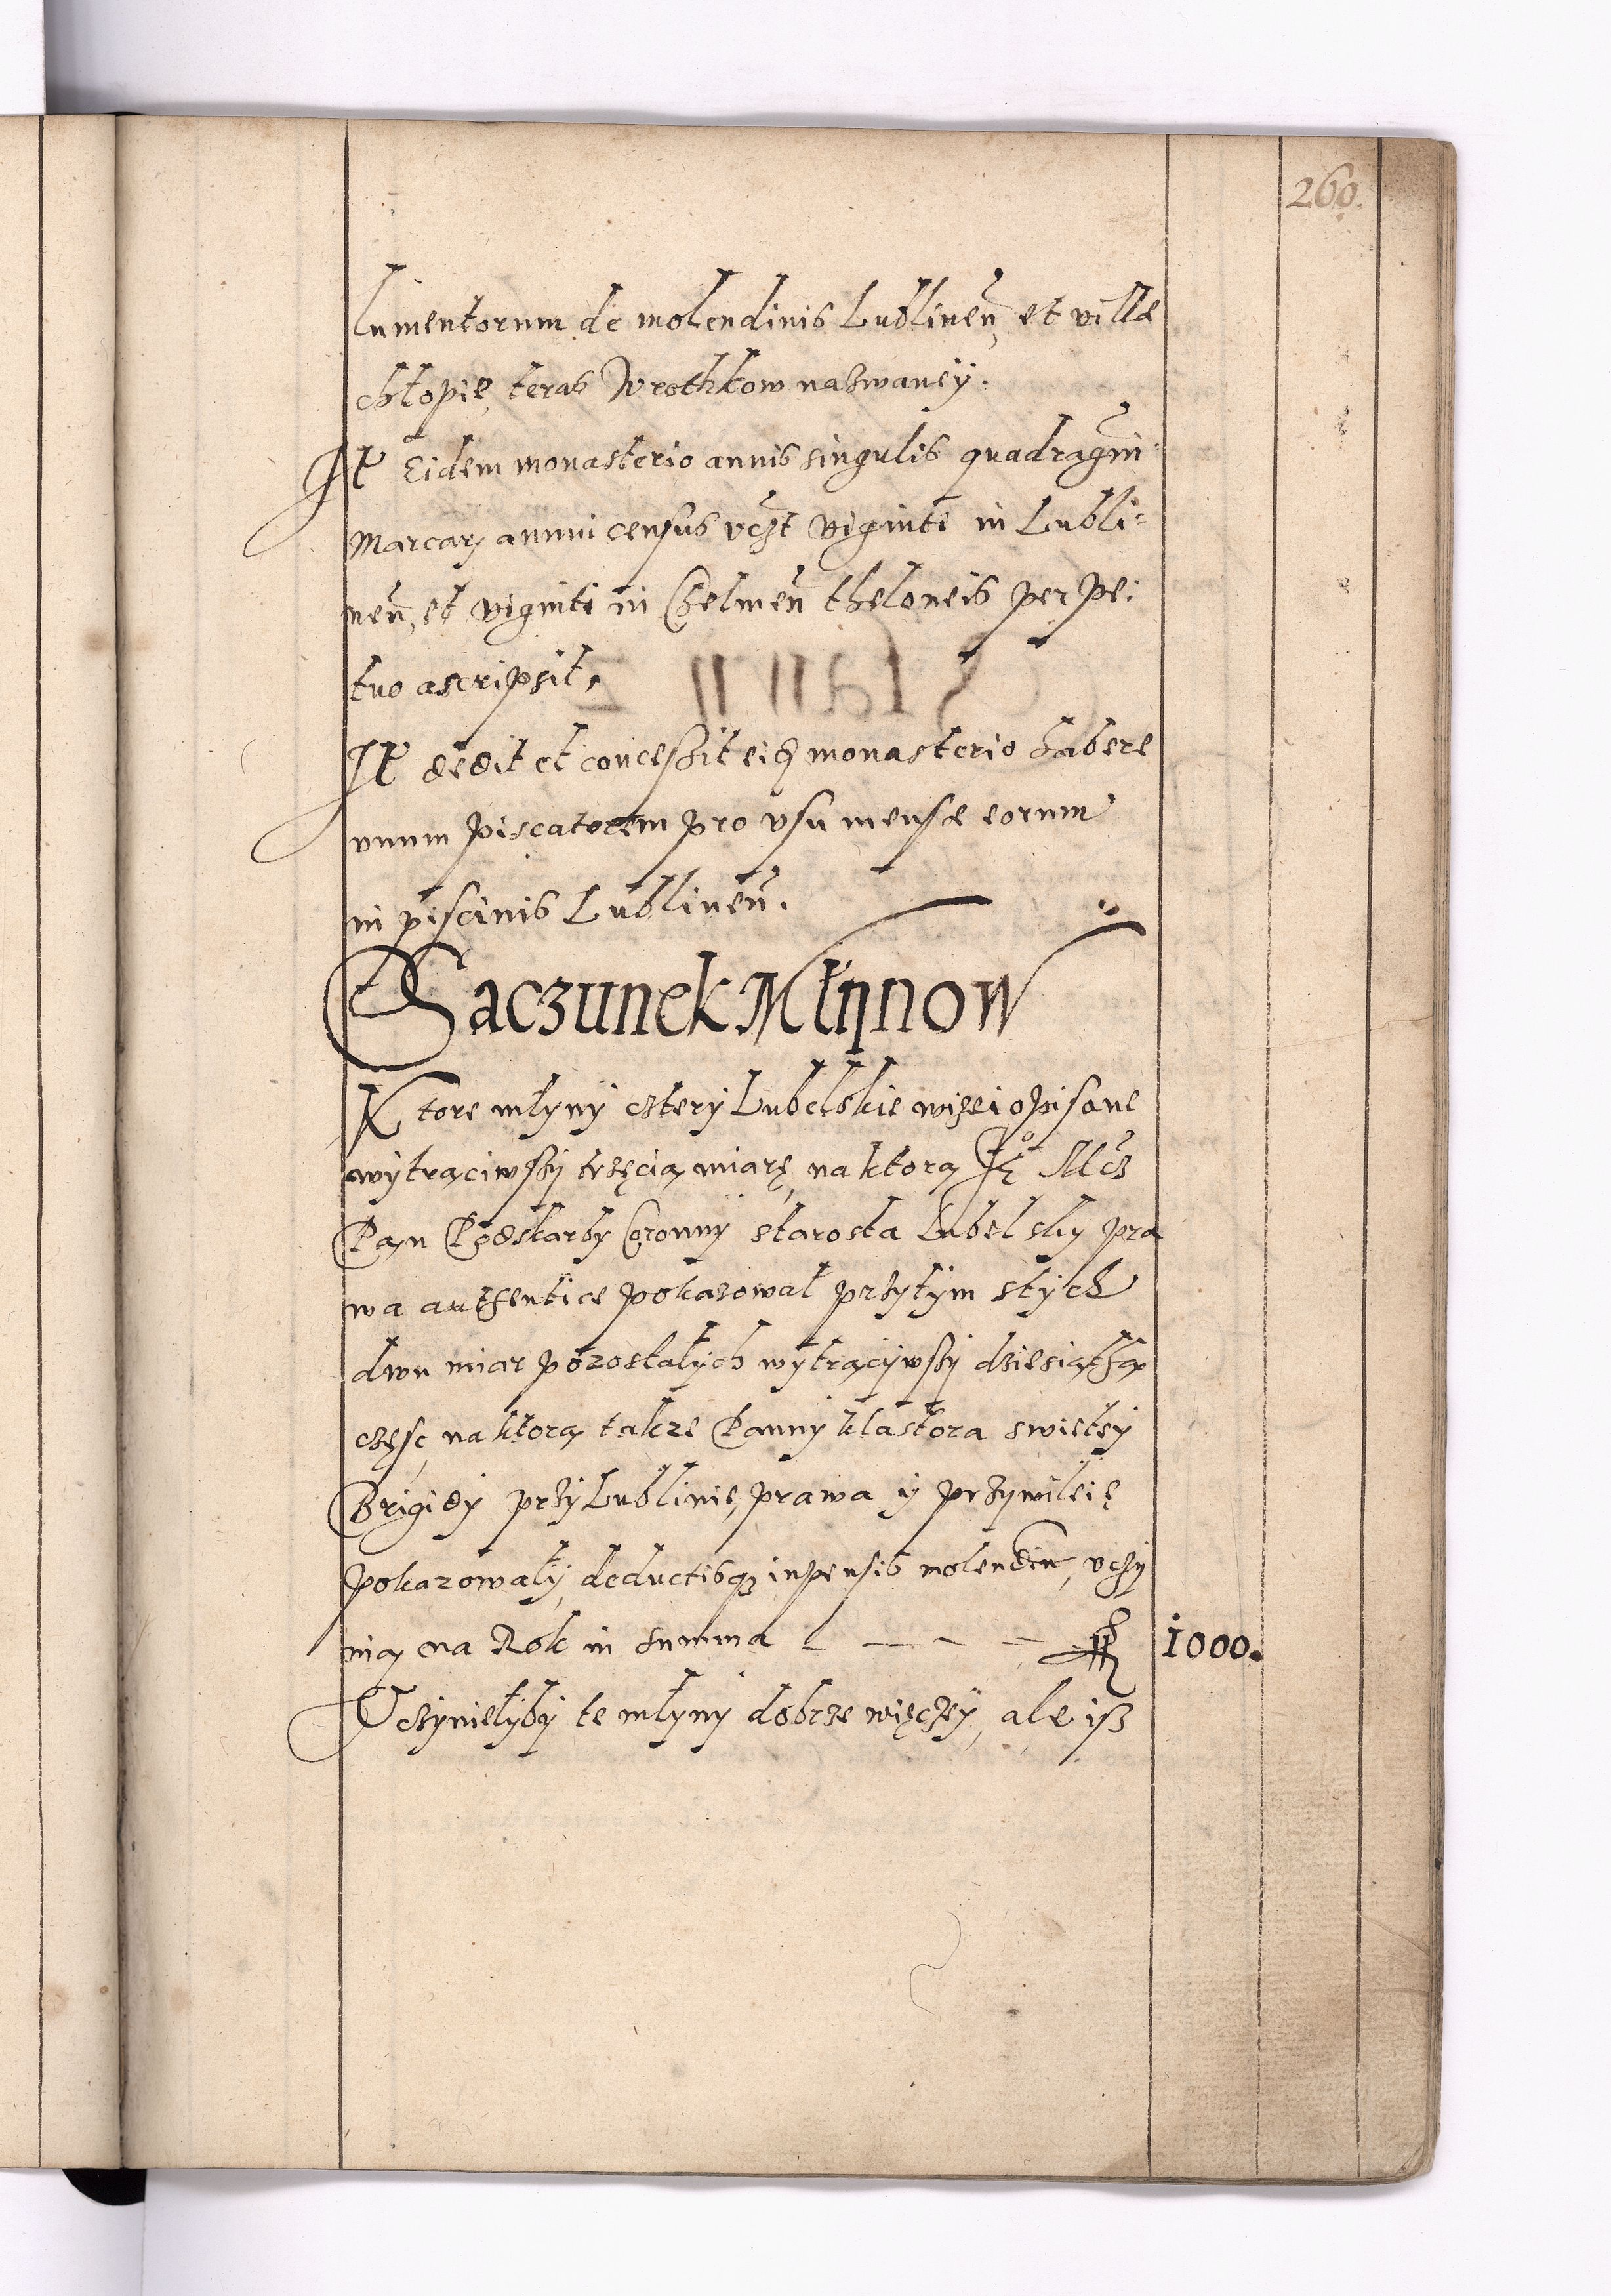 260.
lumentorum de molendinis Lublineñ, et villæ
chłopie, teras Wrothkow nazwaney.
It Eidem monasterio annis singulis quadragin:
Marcar annui census vczt viginti in Lubli:
neñ, et viginti in Chelmeñ theloneis perpe:
tuo ascripsit,
It dedit et conceßit eid monasterio habere
vnum piscatorem pro vsu mensæ eorum
in piscinis Lublineñ.
Saczunek Młynow
Ktore młyny cztery Lubelskie wiżei opisane
wytrąciwßy trzęcią miarę, na ktorą Je° Mcz
Pan Podskarby Coronny starosta Lubelsky pra
wa authentice pokazował przytym stych
dwu miar pozostałych wytrącywßy dziesiąthą
częsc, na ktorą takze Panny klastora swietey
Brigidy przy Lublinie, prawa y przywileię
pokazowały, deductisq inpensis molendin, vczy
nią na Rok in summa 1000.
Vczyniełyby te młyny dobrze więczey, ale iß